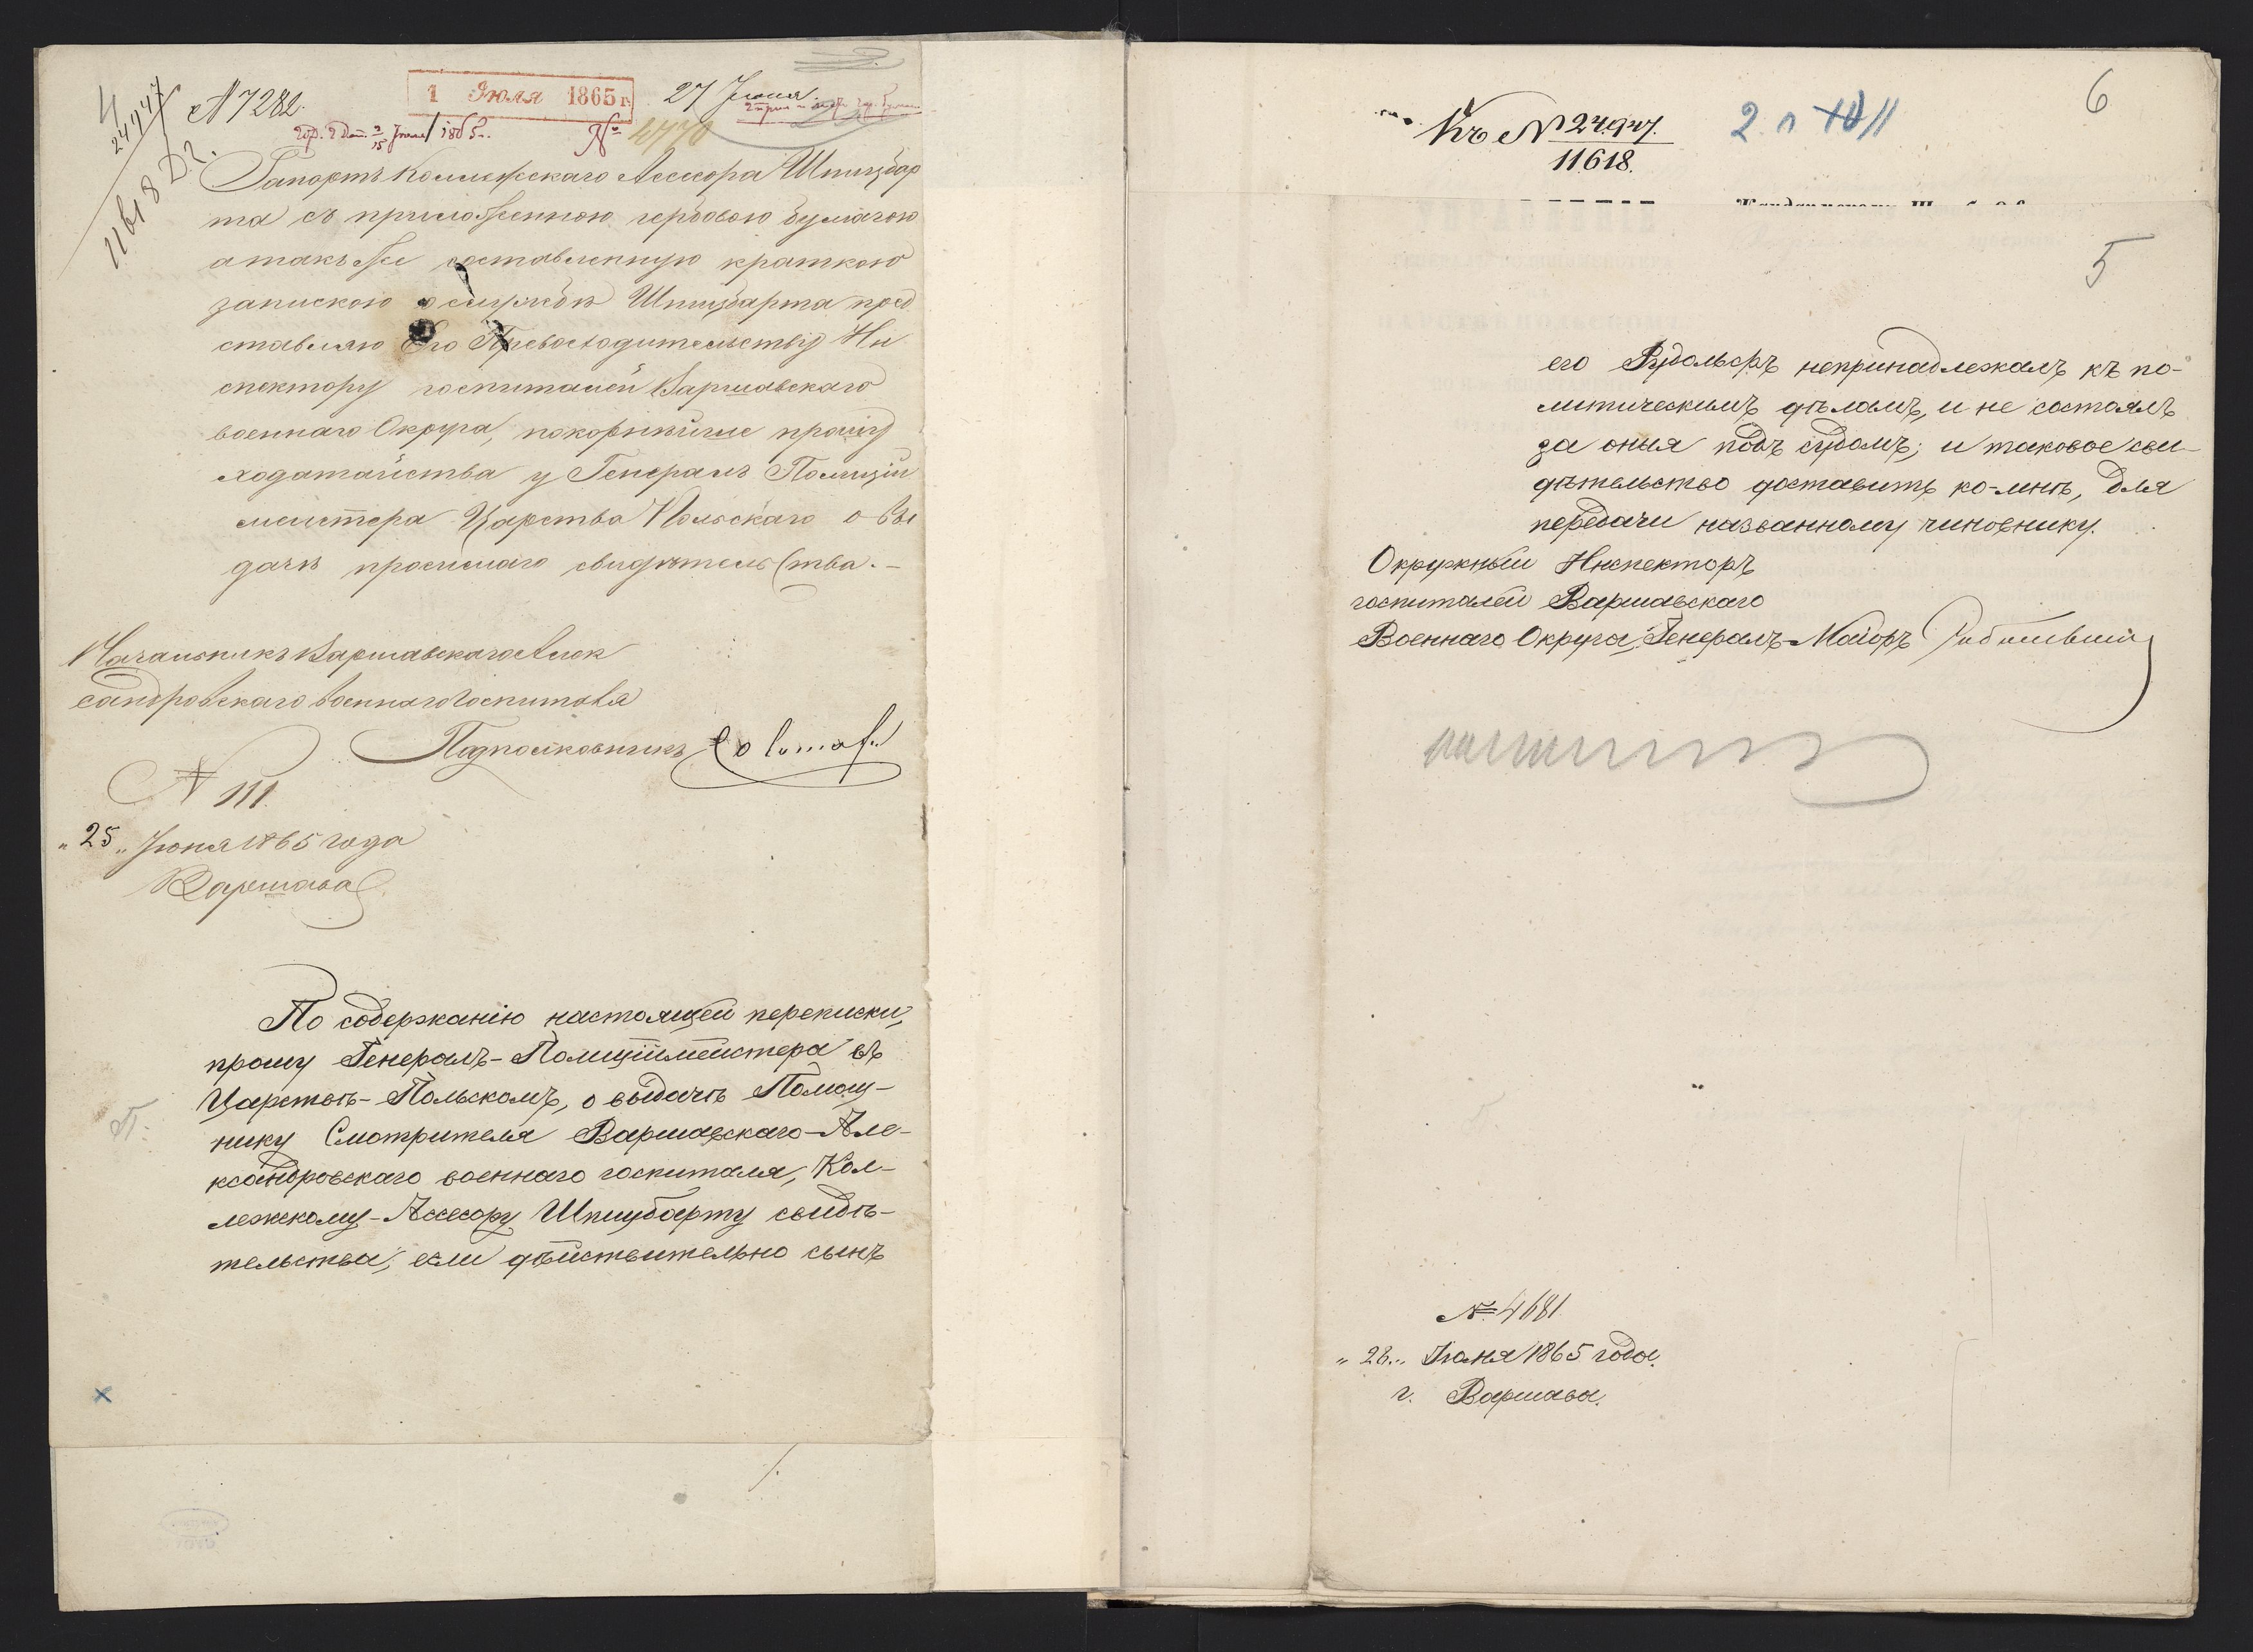 4
24947
11618 Д.2.
№ 7282.
1 Июля 1865 г.
27 Июня
№ 4770
Рапортъ Коллежскаго Асессора Шпицбар
та съ приложенною гербовою бумагою
атакъ же составленную краткою
запискою о службѣ Шпицбарта пред
ставляю Его Превосходительству Ин
спектору госпиталей Варшавскаго
военнаго Округа, покорнѣйше прошу
ходатайства у Генералъ Полицій
мейстера Царства Польскаго о вы
дачѣ просимаго свидѣтельства.-
Начальникъ Варшавскаго Алек
сандровскаго военнаго Госпиталя
Подполковникъ
№ 111.
"25" Июня 1865 года
Варшава
По содержанію настоящей переписки,
прошу Генералъ-Полиціймейстера въ
Царствѣ-Польскомъ, о выдачѣ Помощ-
нику Смотрителя Варшавскаго-Але-
ксандровскаго военнаго госпиталя, Кол-
лежскому-Ассесору Шпицбарту свидѣ-
тельства, если дѣйствительно сынъ
6
Къ № 24947.
11618.
5
его Рудольфъ непринадлежалъ къ по-
литическимъ дѣламъ, и не состоялъ
за оныя подъ судомъ; и таковое сви-
дѣтельство доставить ко-мнѣ, для
передачи названному чиновнику.
Окружный Инспекторъ
госпиталей Варшавскаго
Военнаго Округа, Генералъ-Маіоръ
№ 4681.
"28" Июня 1865 года.
г. Варшава.